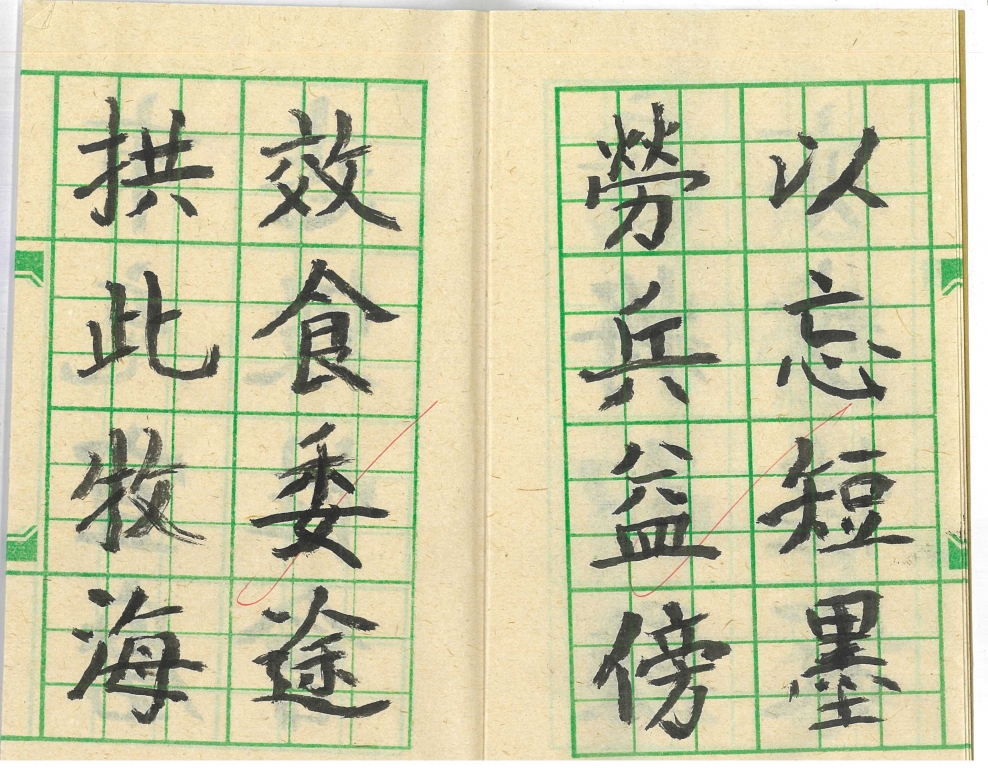 以忘短墨
勞兵益傍
效食委途
拱此牧海